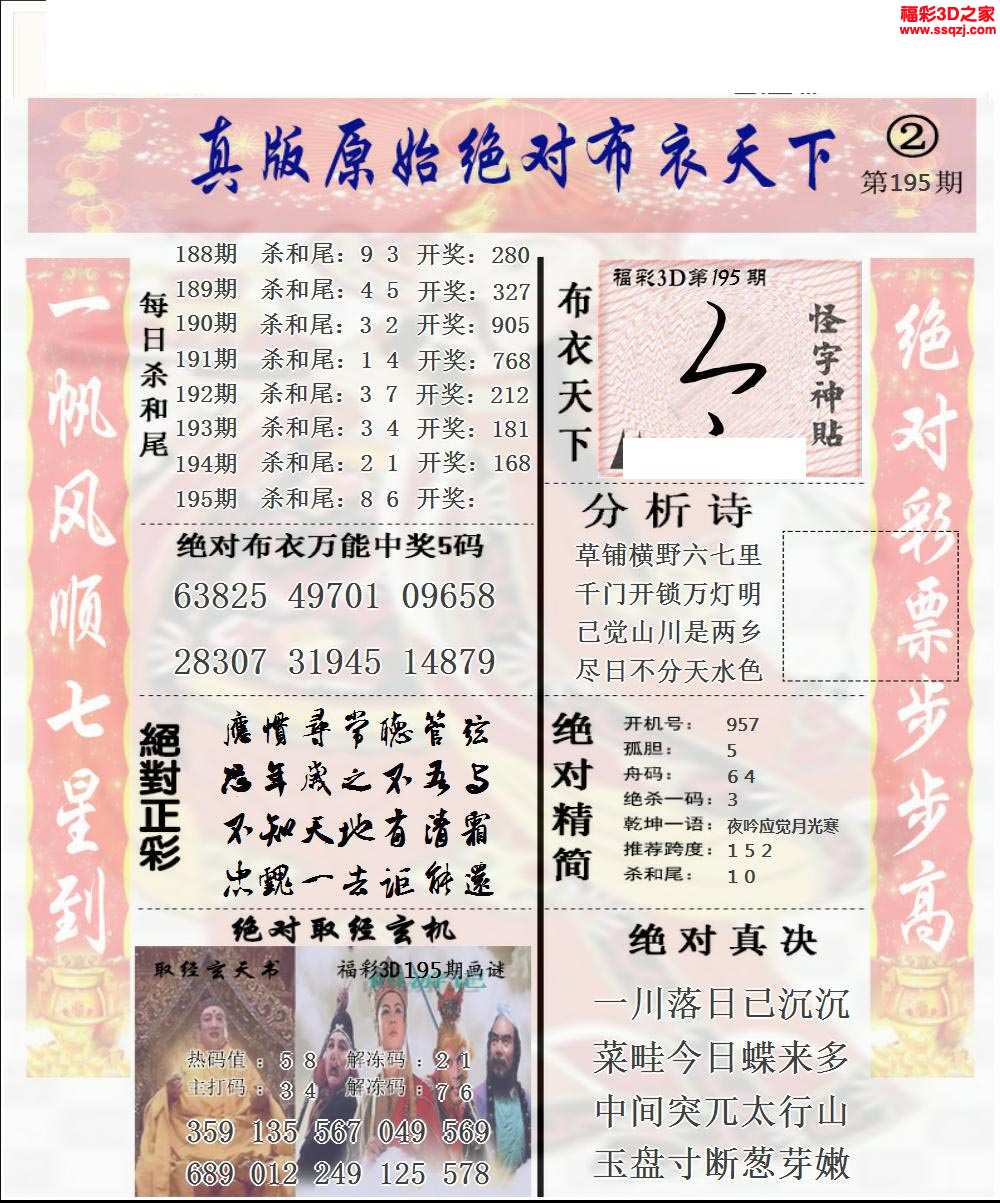 福彩3D之家
www.ssqzj.com
真版原始绝对布衣天下
②
第195期
一帆风顺七星到
每日杀和尾
188期 杀和尾：9 3 开奖：280
189期 杀和尾：4 5 开奖：327
190期 杀和尾：3 2 开奖：905
191期 杀和尾：1 4 开奖：768
192期 杀和尾：3 7 开奖：212
193期 杀和尾：3 4 开奖：181
194期 杀和尾：2 1 开奖：168
195期 杀和尾：8 6 开奖：
绝对布衣万能中奖5码
63825 49701 09658
28307 31945 14879
絕對正彩
應慣尋常聴管弦
忽年歳之不吾与
不知天地有清霜
忠魂一去讵能還
绝对取经玄机
取经玄天书
福彩3D195期画谜
热码值：5 8 解冻码：2 1
主打码：3 4 解冻码：7 6
359 135 567 049 569
689 012 249 125 578
布衣天下
福彩3D第195期
怪字神貼
分析诗
草铺横野六七里
千门开锁万灯明
已觉山川是两乡
尽日不分天水色
绝对精简
开机号： 957
孤胆： 5
舟码： 6 4
绝杀一码：3
乾坤一语：夜吟应觉月光寒
推荐跨度：1 5 2
杀和尾： 1 0
绝对真决
一川落日已沉沉
菜畦今日蝶来多
中间突兀太行山
玉盘寸断葱芽嫩
绝对彩票步步高